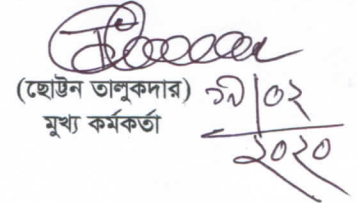 (ছোট্টন তালুকদার)
মুখ্য কর্মকর্তা
১৯/০২
২০২০